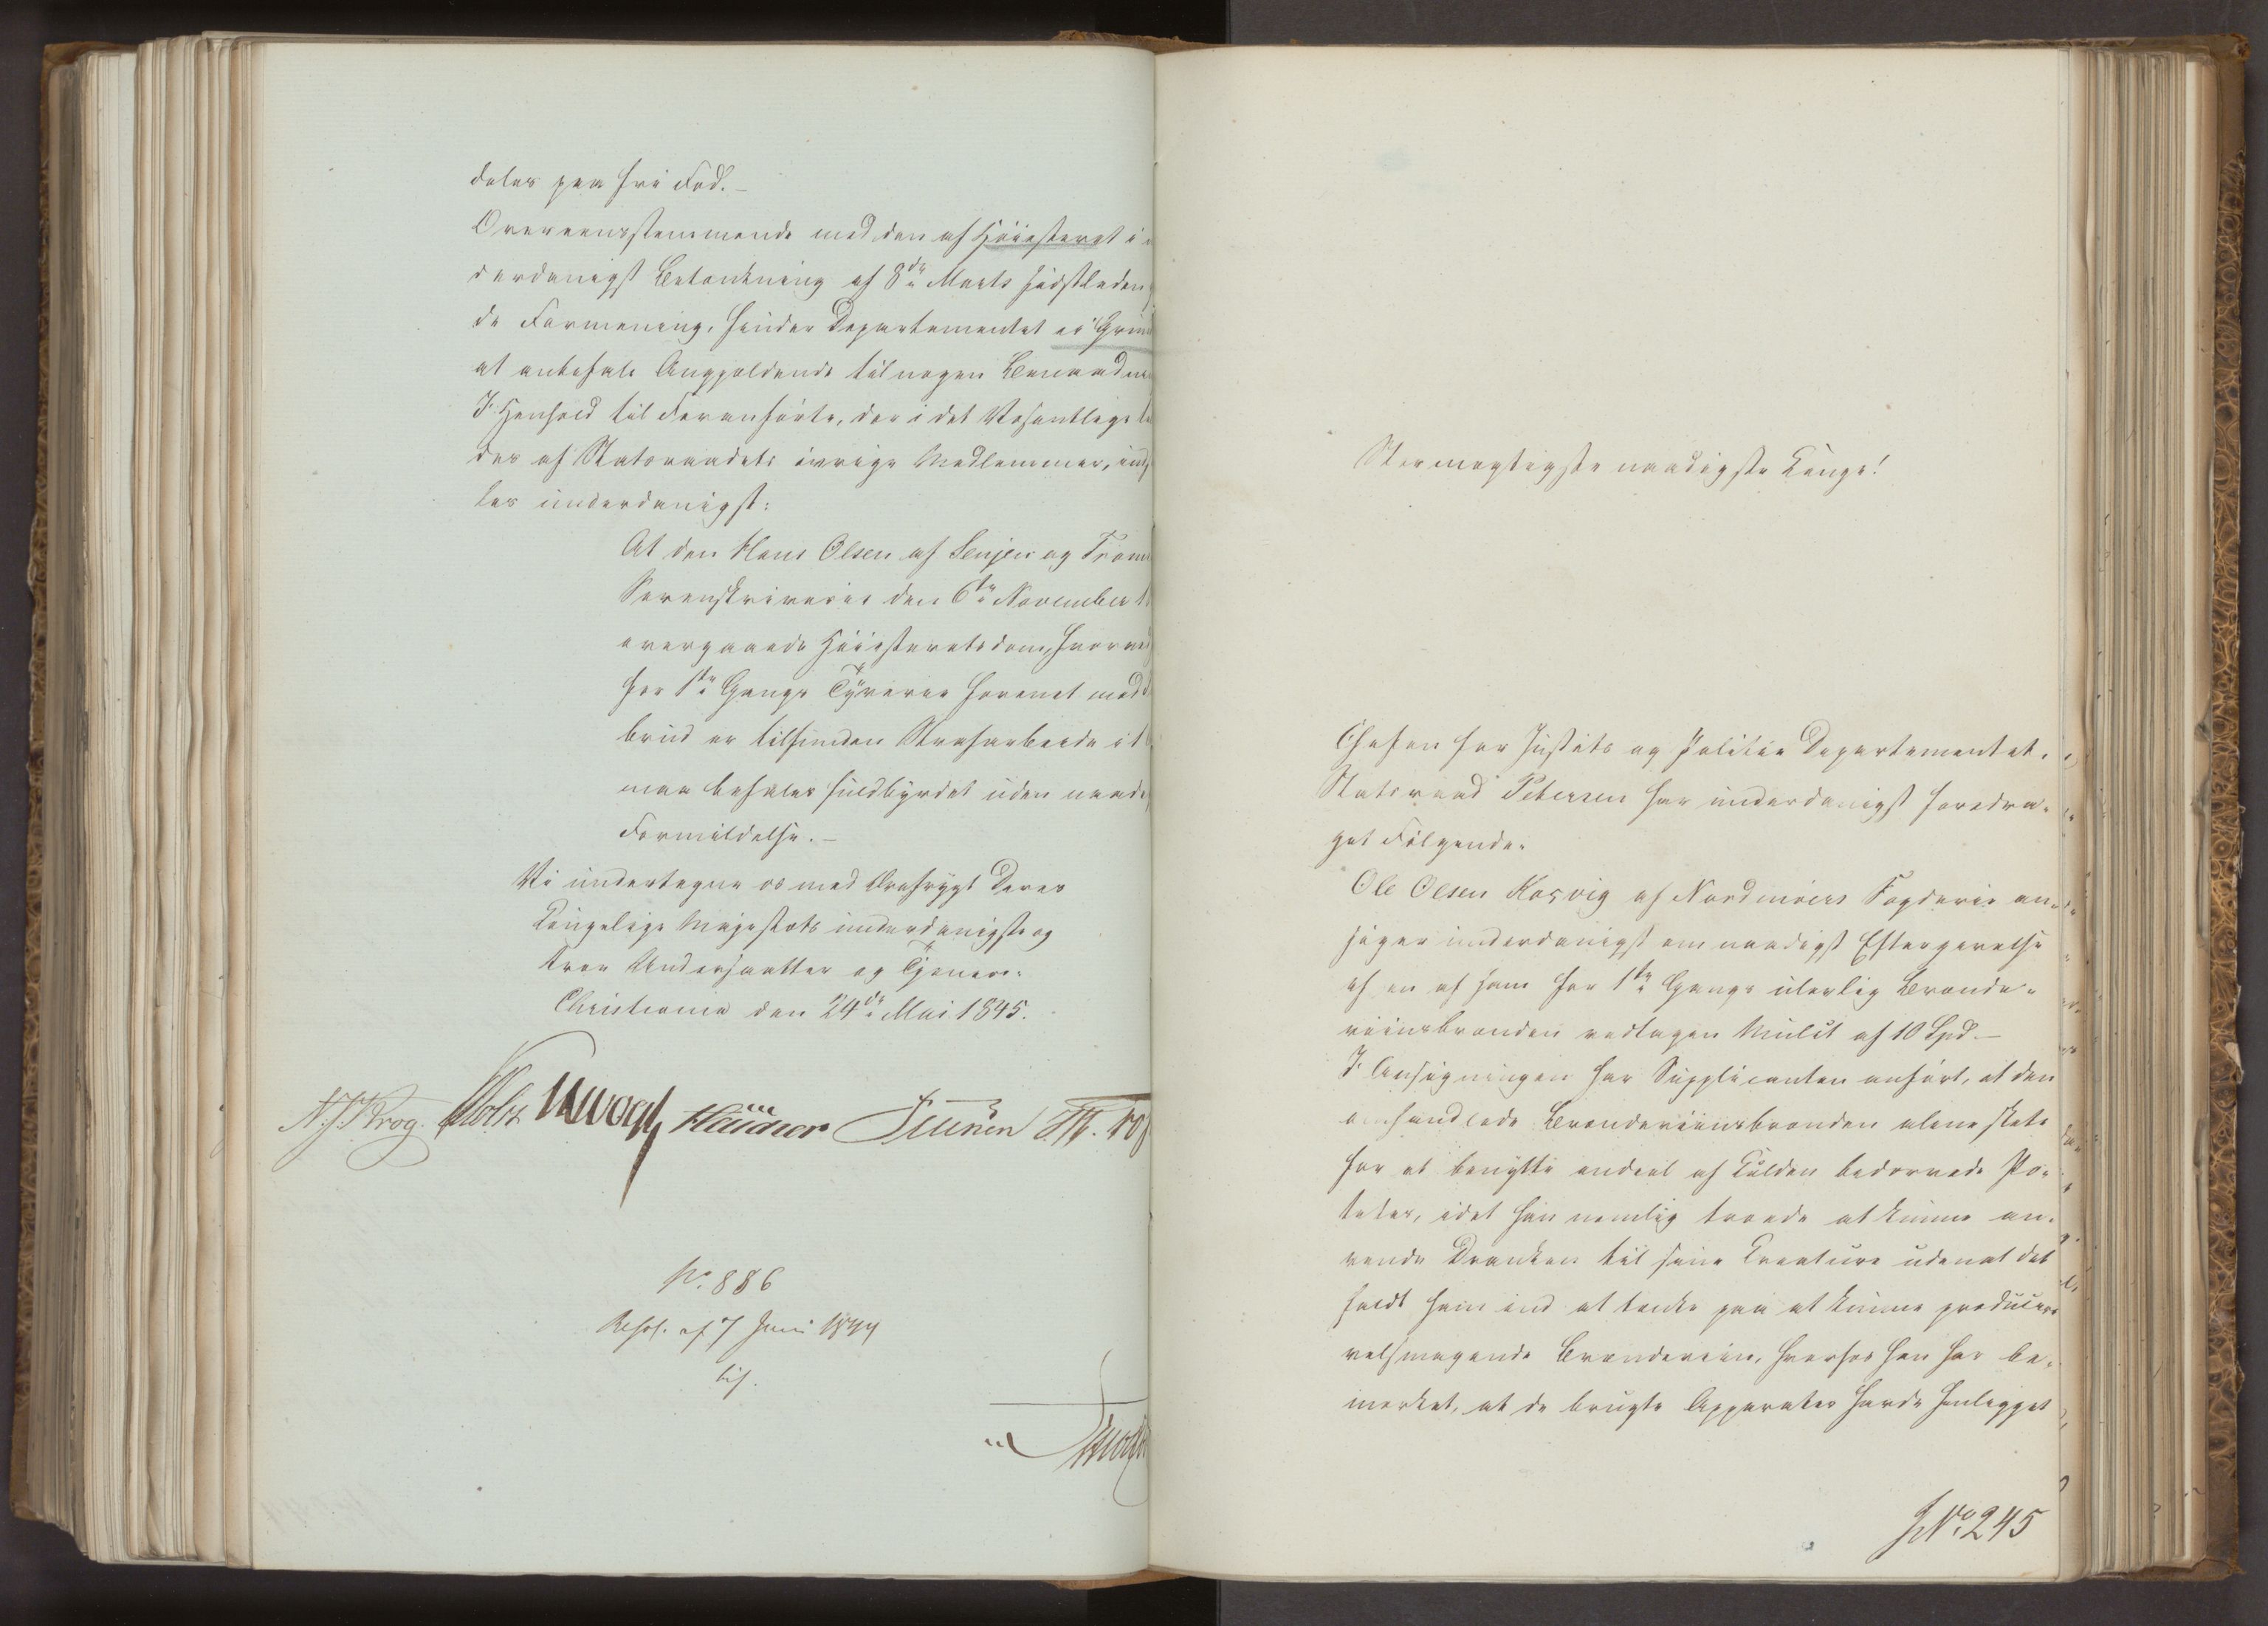 deles paa fri Fod. –
Overeensstemmende med den af Høiesteret i
derdanigst Betænkning af 8de Marts sidstleden
de Formening, finder Departementet ei Grund
at anbefale Angjældende til nogen Benaadn
I Henhold til Foranførte, der i det Væsentlige
des af Statsraadets øvrige Medlemmer, ind
les underdanigst:
At den Hans Olsen af Senjen og Troms
Sorenskriverie den 6te November 1
overgaaede Høiesteretsdom, hvorved
for 1ste Gangs Tyverie forenet med
brud er tilfunden Strafarbeide i 1
maa befales fuldbyrdet uden naadig
Formildelse. –
Vi undertegne os med Ærefrygt Deres
Kongelige Majestæts underdanigste og
troe Undersaatter og Tjenere.
Christiania den 24de Mai 1845.
N. J. Krog. Holst JHVogt
No. 886
Resol. af 7 Juni 1844
Stormægtigste naadigste Konge!
Chefen for Justits og Politie Departementet,
Statsraad Petersen har underdanigst foredra-
get Følgende.
Ole Olsen Korsvig af Nordmøers Fogderie an-
søger underdanigst om naadigst Eftergivelse
af en af ham for 1ste Gangs ulovlig Brænde-
viinsbrænden vedtagen Mulct af 10 Spd. –
I Ansøgningen har Supplicanten anført, at den
omhandlede Brændeviinsbrænden alene skete
for at benytte endeel af Kulden bedærvede Po-
teter, idet han nemlig troede at kunne an-
vende Dranken til sine Creature uden at det
faldt ham ind at tænke paa at kunne producere
velsmagende Brændeviin, hvorfor han har be-
mærket, at de brugte Apparater havde henligget
JNo. 245